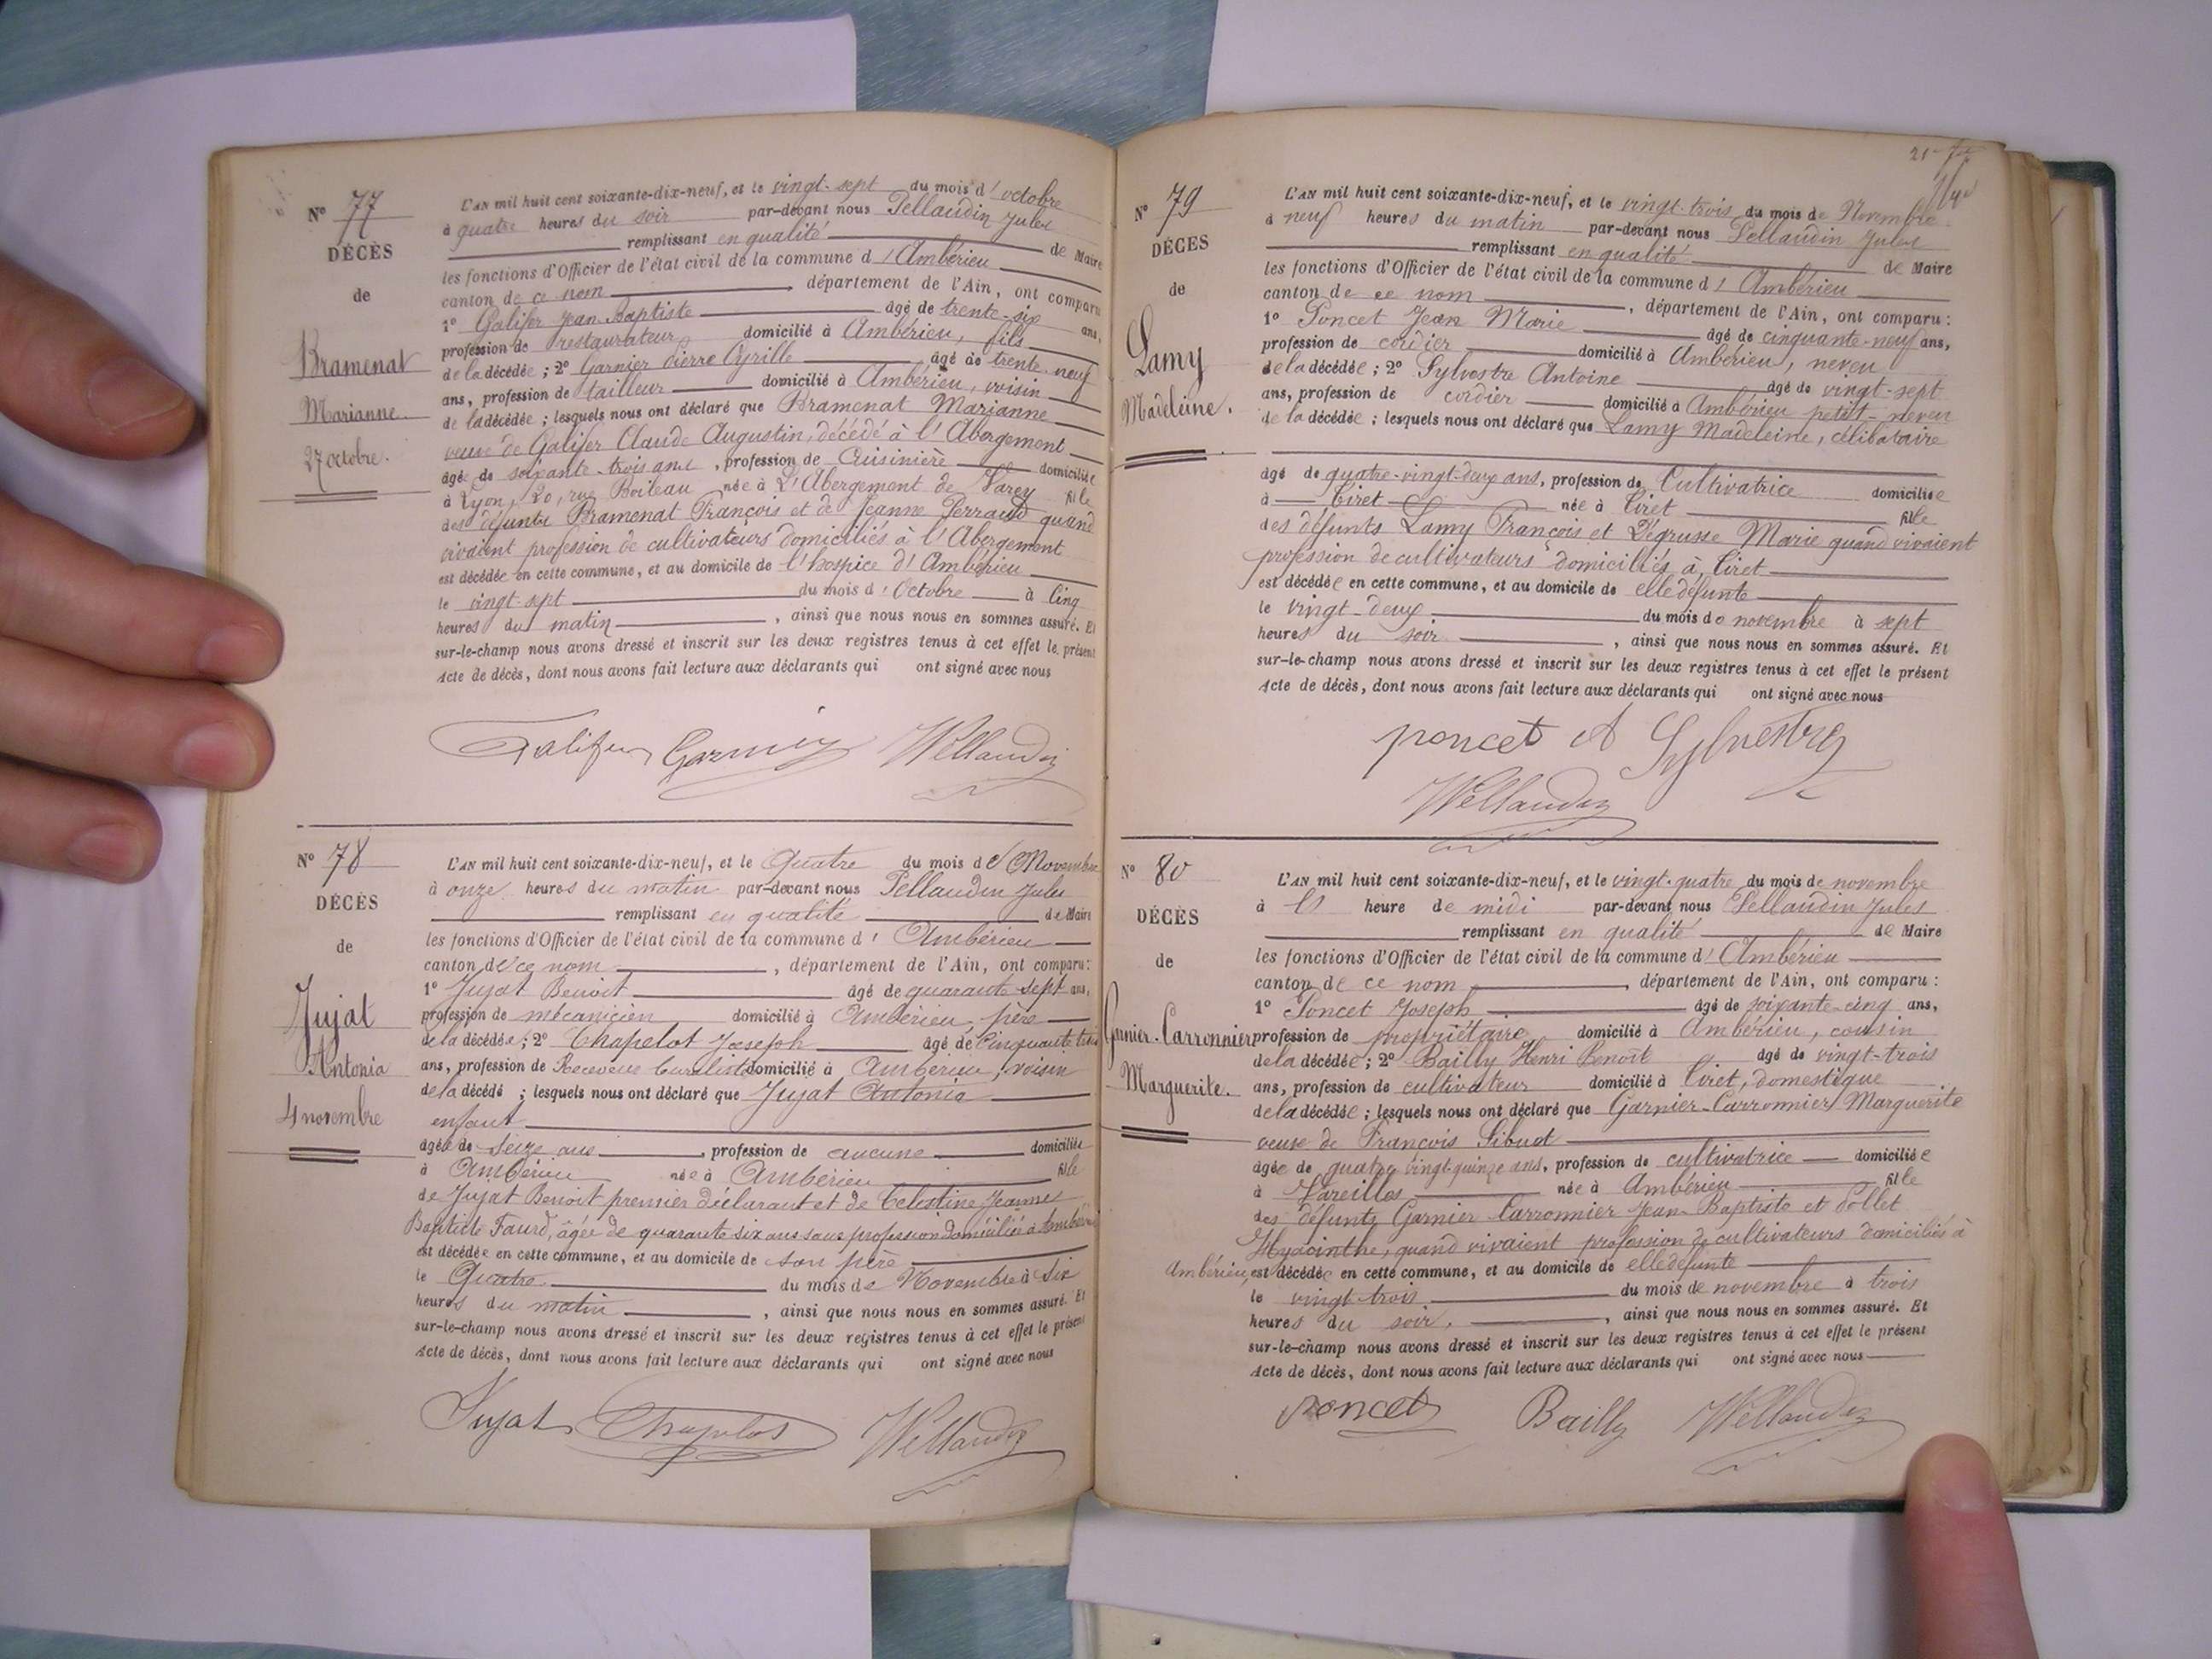 N° 77
DÉCÈS
de
Bramenat
Marianne.
27 octobre.
L'AN mil huit cent soixante-dix-neuf, et le vingt-sept du mois d'octobre
à quatre heures du soir par-devant nous Pellaudin Jules
remplissant en qualité de Maire
les fonctions d'Officier de l'état civil de la commune d'Ambérieu
canton de ce nom, département de l'Ain, ont comparu
1° Galifer Jean Baptiste âgé de trente-six ans,
profession de restaurateur domicilié à Ambérieu, fils
de la décédée ; 2° Garnier Pierre Cyrille âgé de trente-neuf
ans, profession de tailleur domicilié à Ambérieu, voisin
de la décédée ; lesquels nous ont déclaré que Bramenat Marianne
veuve de Galifer Claude Augustin, décédé à l'Abergement
âgée de soixante-trois ans, profession de Cuisinière domiciliée
à Lyon, 20, rue Boileau née à L'Abergement de Varey fille
des défunts Bramenat François et de Jeanne Perraud quand
vivaient profession de cultivateurs domiciliés à l'Abergement
est décédée en cette commune, et au domicile de l'hospice d'Ambérieu
le vingt-sept du mois d'Octobre à Cinq
heures du matin, ainsi que nous nous en sommes assuré. Et
sur-le-champ nous avons dressé et inscrit sur les deux registres tenus à cet effet le présent
Acte de décès, dont nous avons fait lecture aux déclarants qui ont signé avec nous
Galifer Garnier Pellaudin
N° 78
DÉCÈS
de
Jujat
Antonia
4 novembre
L'AN mil huit cent soixante-dix-neuf, et le Quatre du mois de Novembre
à onze heures du matin par-devant nous Pellaudin Jules
remplissant en qualité de Maire
les fonctions d'Officier de l'état civil de la commune d'Ambérieu
canton de ce nom, département de l'Ain, ont comparu :
1° Jujat Benoit âgé de quarante-sept ans,
profession de mécanicien domicilié à Ambérieu, père
de la décédée ; 2° Chapelot Joseph âgé de Cinquante-trois
ans, profession de Receveur buraliste domicilié à Ambérieu, voisin
de la décédé ; lesquels nous ont déclaré que Jujat Antonia
enfant
âgée de seize ans, profession de aucune domiciliée
à Ambérieu née à Ambérieu fille
de Jujat Benoit premier déclarant et de Célestine Jeanne
Baptiste Faurd, âgée de quarante six ans sans profession domiciliée à Ambérieu
est décédée en cette commune, et au domicile de son père
le Quatre du mois de Novembre à six
heures du matin, ainsi que nous nous en sommes assuré. Et
sur-le-champ nous avons dressé et inscrit sur les deux registres tenus à cet effet le présent
Acte de décès, dont nous avons fait lecture aux déclarants qui ont signé avec nous
Jujat Chapelot Pellaudin
N° 79
DÉCÈS
de
Lamy
Madeleine.
L'AN mil huit cent soixante-dix-neuf, et le vingt-trois du mois de Novembre
à neuf heures du matin par-devant nous Pellaudin Jules
remplissant en qualité de Maire
les fonctions d'Officier de l'état civil de la commune d'Ambérieu
canton de ce nom, département de l'Ain, ont comparu :
1° Poncet Jean Marie âgé de cinquante-neuf ans,
profession de cordier domicilié à Ambérieu, neveu
de la décédée ; 2° Sylvestre Antoine âgé de vingt-sept
ans, profession de cordier domicilié à Ambérieu petit-neveu
de la décédée ; lesquels nous ont déclaré que Lamy Madeleine, célibataire
âgé de quatre-vingt-deux ans, profession de Cultivatrice domiciliée
à Tiret née à Tiret fille
des défunts Lamy François et Dégrusse Marie quand vivaient
profession de cultivateurs domiciliés à Tiret
est décédée en cette commune, et au domicile de elle défunte
le vingt-deux du mois de novembre à sept
heures du soir, ainsi que nous nous en sommes assuré. Et
sur-le-champ nous avons dressé et inscrit sur les deux registres tenus à cet effet le présent
Acte de décès, dont nous avons fait lecture aux déclarants qui ont signé avec nous
poncet A Sylvestre
Pellaudin
N° 80
DÉCÈS
de
Garnier-Carronnier
Marguerite.
L'AN mil huit cent soixante-dix-neuf, et le vingt-quatre du mois de novembre
à heure de midi par-devant nous Pellaudin Jules
remplissant en qualité de Maire
les fonctions d'Officier de l'état civil de la commune d'Ambérieu
canton de ce nom, département de l'Ain, ont comparu :
1° Poncet Joseph âgé de soixante-cinq ans,
profession de propriétaire domicilié à Ambérieu, cousin
de la décédée ; 2° Bailly Henri Benoît âgé de vingt-trois
ans, profession de cultivateur domicilié à Tiret, domestique
de la décédée ; lesquels nous ont déclaré que Garnier-Carronnier Marguerite
veuve de François Sibuet
âgée de quatre vingt-quinze ans, profession de cultivatrice domiciliée
à Vareilles née à Ambérieu fille
des défunts Garnier Carronnier Jean-Baptiste et Pollet
Hyacinthe, quand vivaient profession de cultivateurs domiciliés à
Ambérieu, est décédée en cette commune, et au domicile de elle défunte
le vingt-trois du mois de novembre à trois
heures du soir, ainsi que nous nous en sommes assuré. Et
sur-le-champ nous avons dressé et inscrit sur les deux registres tenus à cet effet le présent
Acte de décès, dont nous avons fait lecture aux déclarants qui ont signé avec nous
poncet Bailly Pellaudin